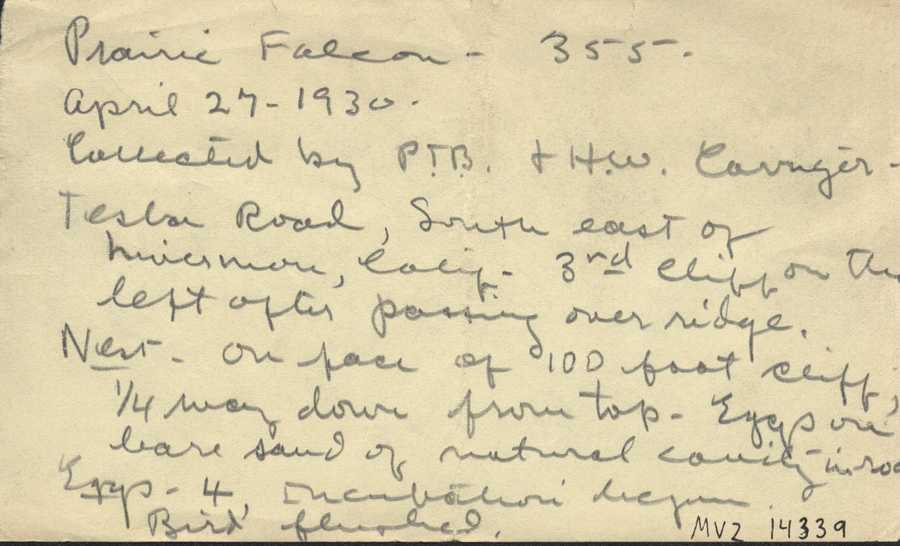 Prairie Falcon - 355-.
April 27-1930.
Collected by P.T.B. & H.W. Carriger -
Tesla Road, South east of
Livermore, Calif. - 3rd cliff on the
left after passing over ridge.
Nest - On face of 100 foot cliff,
1/4 way down from top - Eggs on
bare sand of natural cavity in roc
Eggs - 4, incubation begun
Bird flushed.
MVZ 14339